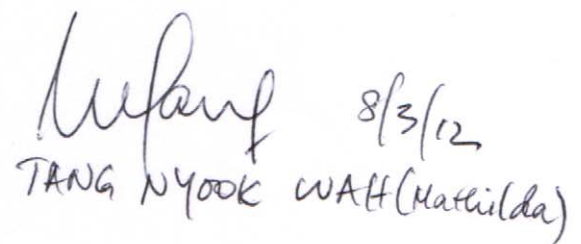 8/3/12
TANG NYOOK WAH (Mathilda)